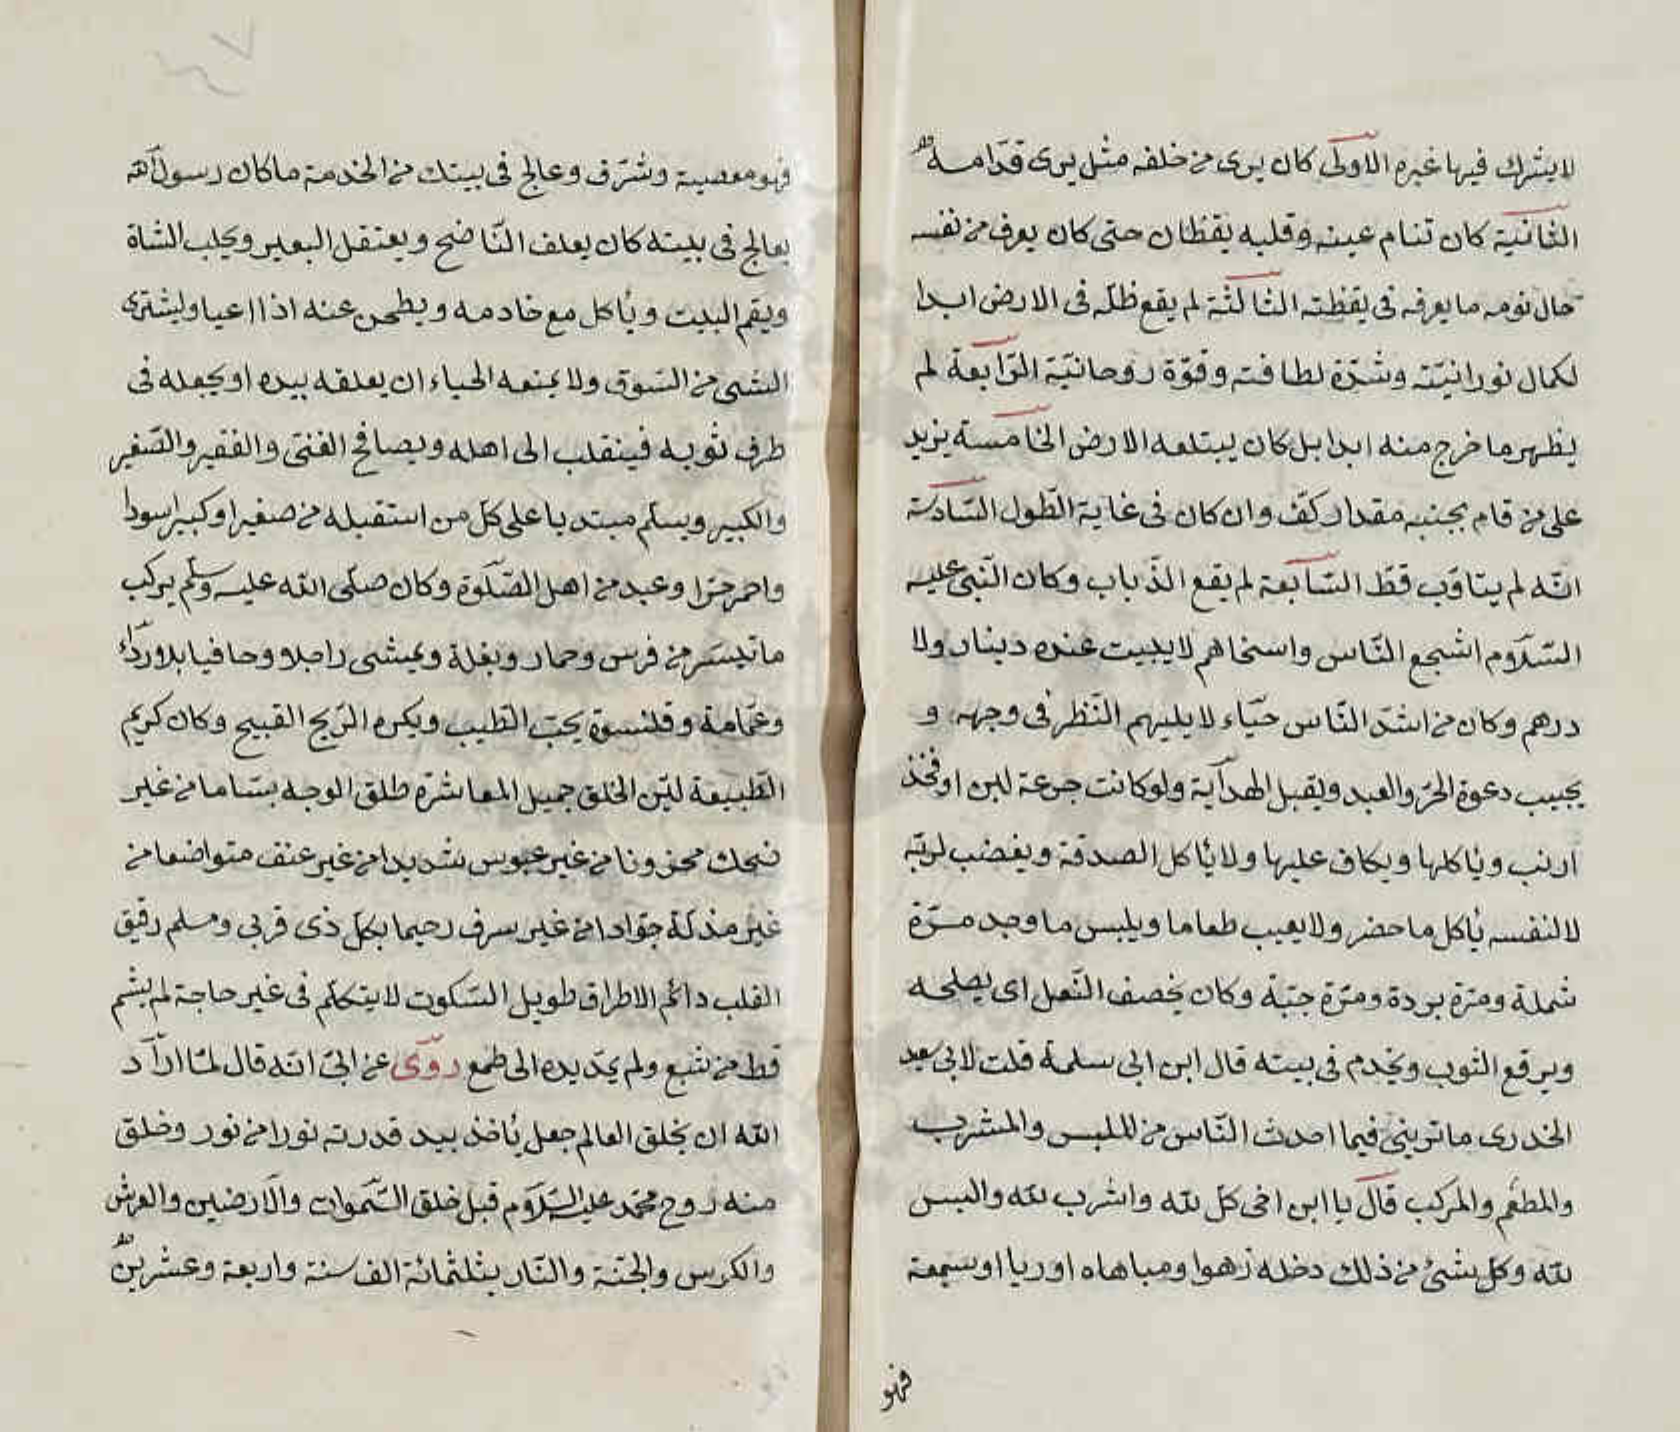 لا يشرك فيها غيره الاولى كان يرى من خلفه مثل يرى قدّامه
الثانية كان تنام عينه وقلبه يقظان حتى كان يعرف من نفسه
حال نومه ما يعرفه فى يقظته الثالثة لم يقع ظلّه فى الارض ابدا
لكمال نورانيّته وشدّة لطافته وقوّة روحانيّة الرّابعة لم
يظهر ما خرج منه ابدا بل كان يبتلعه الارض الخامسة يزيد
على من قام بجنبه مقدار كفّ وان كان فى غاية الطّول السّادسة
انّه لم يتاؤب قطّ السّابعة لم يقع الذّباب وكان النّبى عليه
السّلام اشجع النّاس واسخاهم لا يبيت عنده دينار ولا
درهم وكان من اشدّ النّاس حيّاء لا يليهم النّظر فى وجهه و
يجيب دعوة الحرّ والعبد ويقبل الهداية ولو كانت جرعة لبن او فخذ
ارنب وياكلها ويكاف عليها ولا يأكل الصدقة ويغضب لربّه
لا لنفسه يأكل ما حضر ولا يعيب طعاما ويلبس ما وجد مرّة
شملة ومرّة بردة ومرّة جبّة وكان يخصف النّعل اى يصلحه
ويرقع الثوب ويخدم فى بيته قال ابن ابى سلمة قلت لابى سعد
الخدرى ما ترى فيما احدث النّاس من الملبس والمشرب
والمطعم والمركب قال يا ابن اخى كل لله واشرب لله والبس
لله وكل شئ من ذلك دخله زهوا ومباهاه او ريا او سمعة
فهو
فهو معصية وشرّف وعالج فى بيتك من الخدمة ما كان رسول الله
يعالج فى بيته كان يعلف النّاضح ويعتقل البعير ويحلب الشاة
ويقم البيت ويأكل مع خادمه ويطحن عنه اذا اعيا ويشترى
الشئ من السّوق ولا يمنعه الحياء ان يعلقه بيده او يجعله فى
طرف ثوبه فينقلب الى اهله ويصافح الغنى والفقير والصّغير
والكبير ويسلّم مبتديا على كلّ من استقبله من صغير او كبير اسودا
واحمر حرّا وعبد من اهل الصّلوة وكان صلّى الله عليه وسلّم يركب
ما تيسّر من فرس وحمار وبغلة ويمشى راجلا وحافيا بلا رداء
وعمّامة وقلنسوة يحبّ الطّيب ويكره الرّيح القبيح وكان كريم
الطّبيعة ليّن الخلق جميل المعاشرة طلق الوجه بسّاما من غير
ضحك محزونا من غير عبوس شديدا من غير عنف متواضعا من
غير مذلّة جوّادا من غير سرف رحيما بكلّ ذى قربى ومسلم رقيق
القلب دائم الاطراق طويل السّكوت لا يتكلّم فى غير حاجة لم يشم
قط من شبع ولم يمدّ يده الى طمع روى عن ابىّ انّه قال لمّا اراد
الله ان يخلق العالم جعل يأخذ بيد قدرته نورا من نور وخلق
منه روح محمّد عليه السّلام قبل خلق السّموات والارضين والعرش
والكرسى والجنّة والنّار بثلثمائة الف سنة واربعة وعشرين